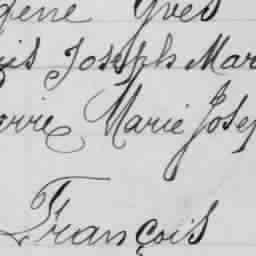 gène Yves
is Joseph Mar
erre Marie Josep
François